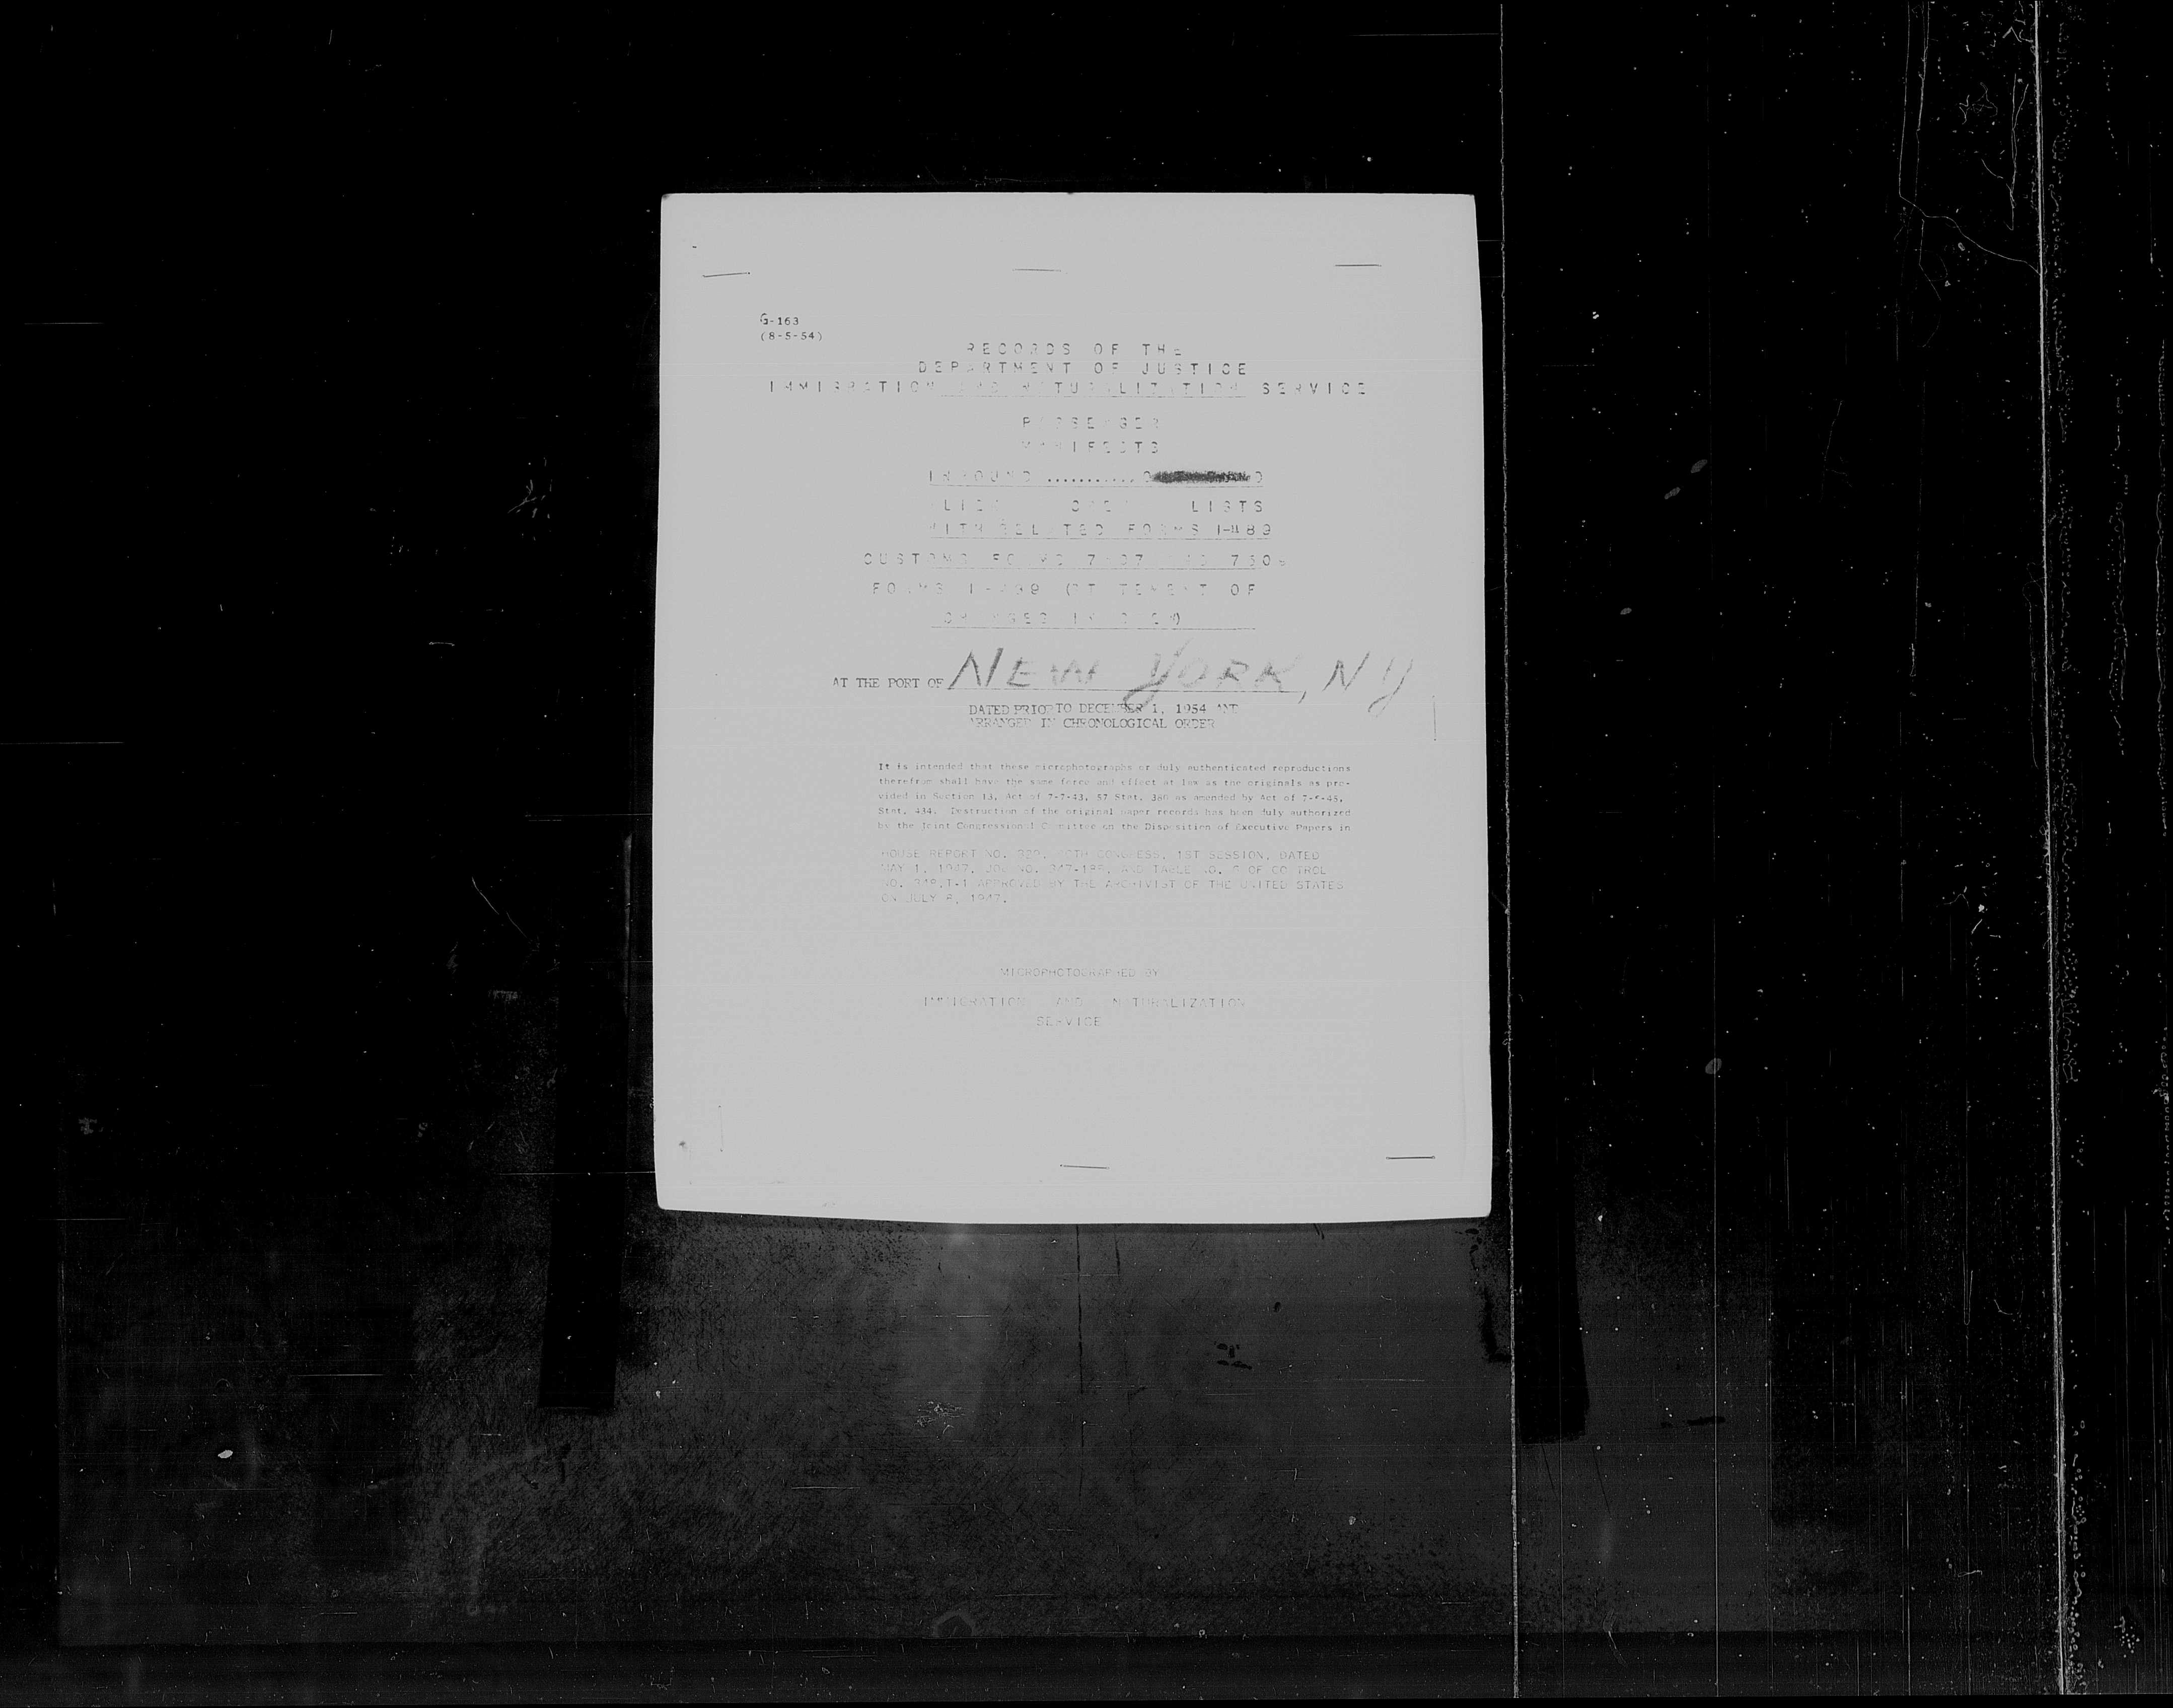 G-163
(8-5-54)
RECORDS OF THE
DEPARTMENT OF JUSTICE
IMMIGRATION AND NATURALIZATION SERVICE
PASSENGER
MANIFESTS
INBOUND ...........
ALIEN CREW LISTS
WITH RELATED FORMS I-489
CUSTOMS FORMS 7507 AND
FORMS I-489 (STATEMENT OF
CHANGES IN CREW)
AT THE PORT OF NEW YORK, NY
DATED PRIOR TO DECEMBER 1, 1954 AND
ARRANGED IN CHRONOLOGICAL ORDER
It is intended that these microphotographs or duly authenticated reproductions
therefrom shall have the same force and effect at law as the originals as pro-
vided in Section 13, Act of 7-7-43, 57 Stat. 380 as amended by Act of
Stat. 434. Destruction of the original paper records has been duly authorized
by the Joint Congressional Committee on the Disposition of Executive Papers in
HOUSE REPORT NO. CONGRESS, 1ST SESSION, DATED
MAY 1, 1947, JOB NO. AND TABLE NO. OF CONTROL
NO. APPROVED BY THE ARCHIVIST OF THE UNITED STATES
ON JULY 1947.
MICROPHOTOGRAPHED BY
IMMIGRATION AND NATURALIZATION
SERVICE